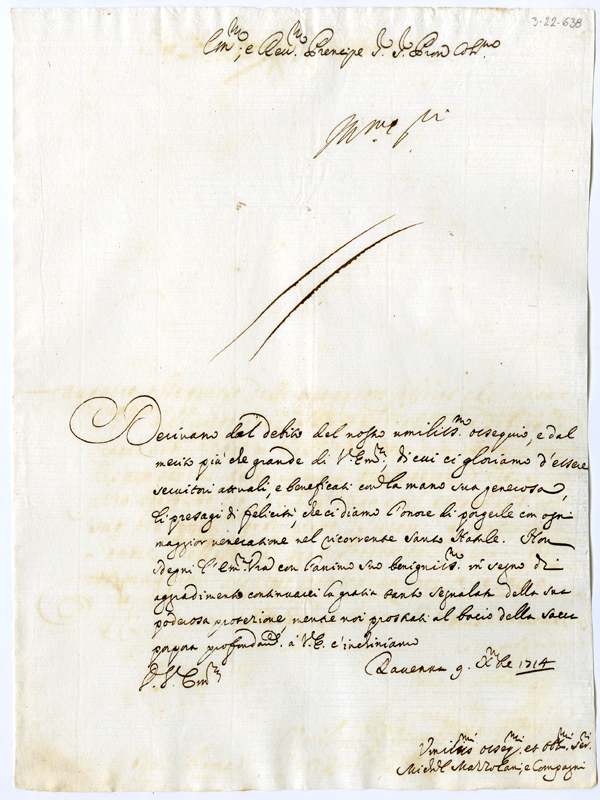 3-22-638
Em.mo, e Reu.mo Prencipe S.r S.r Pron Col.mo
Deriuano dal debito del nostro umiliss.mo ossequio, e dal
merito più che grande di V.Em.za, di cui ci gloriamo d'essere
seruitori attuali, e beneficati con la mano sua generosa,
li presagi di felicità, che ci diamo l'onore di porgerle con ogni
maggior uenerazione nel ricorrente Santo Natale. Non
sdegni l'Em.za Vra con l'animo suo benigniss.mo in segno di
aggradimento continuarci la gratia tanto segnalata della sua
poderosa protezione mentre noi prostrati al bacio della sacra
porpora profondam.te à V.E. c'inchiniamo
Rauenna 9. Xmbre 1714
D. V. Em.za
Vmiliss.mi osseq.mi et obb.mi Ser.ri
Michel Mazzolani, e Compagni